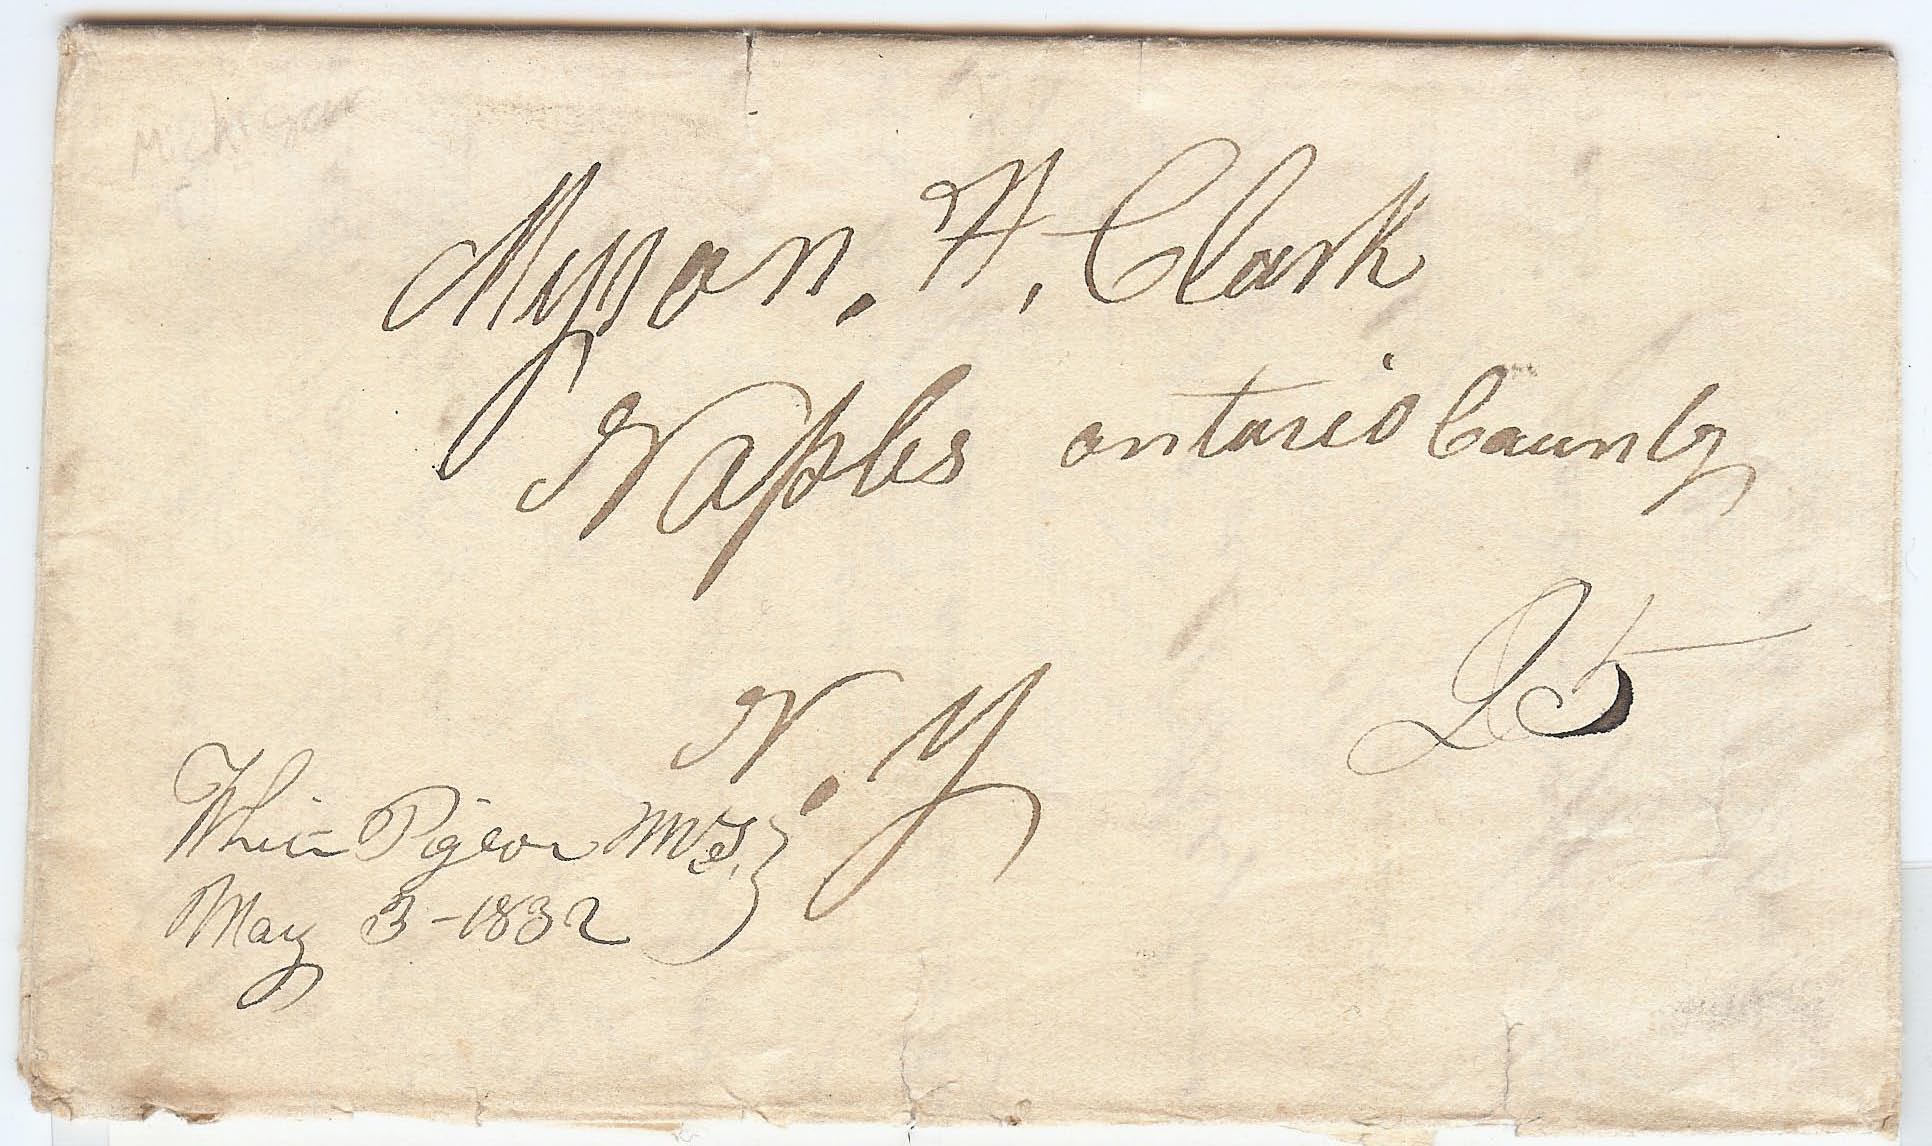 Michigan
Myron. H. Clark
Naples ontario County
25
N. Y
White Pigeon M.T.
May 3-1832